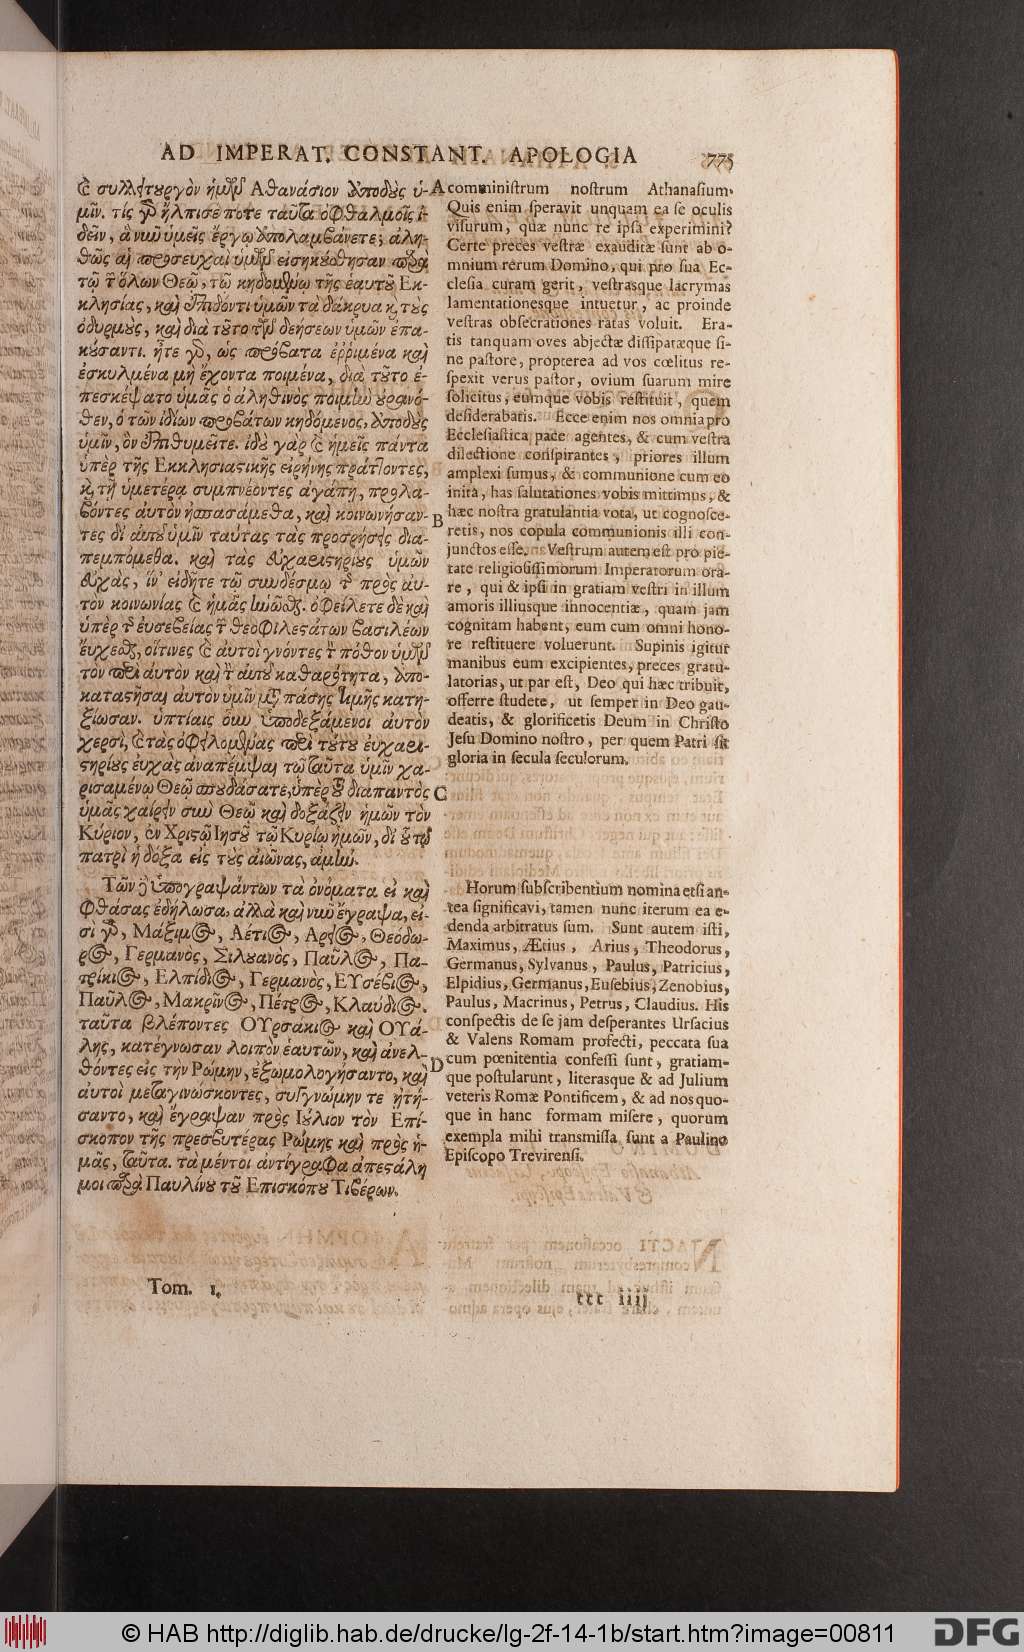 AD IMPERAT. CONSTANT. APOLOGIA 775
ϗ συλλειτουργὸν ἡμῶν Ἀθανάσιον ἀποδοὺς ὑ-
μῖν. τίς γὰρ ἤλπισέ ποτε ταῦτα ὀφθαλμοῖς ἰ-
δεῖν, ἃ νῦν ὑμεῖς ἔργῳ ἀπολαμβάνετε; ἀλη-
θῶς αἱ προσευχαὶ ὑμῶν εἰσηκούσθησαν παρὰ
τῷ τῶν ὅλων Θεῷ, τῷ κηδομένῳ τῆς ἑαυτοῦ Ἐκ-
κλησίας, καὶ ἐπιδόντι ὑμῶν τὰ δάκρυα κ τοὺς
ὀδυρμοὺς, καὶ διὰ τοῦτο τῶν δεήσεων ὑμῶν ἐπα-
κούσαντι. ἦτε γὰρ, ὡς πρόβατα ἐῤῥιμένα καὶ
ἐσκυλμένα μὴ ἔχοντα ποιμένα, διὰ τοῦτο ἐ-
πεσκέψατο ὑμᾶς ὁ ἀληθινὸς ποιμὴν οὐρανό-
θεν, ὁ τῶν ἰδίων προβάτων κηδόμενος, ἀποδοὺς
ὑμῖν, ὃν ἐπιθυμεῖτε. ἰδοὺ γὰρ ϗ ἡμεῖς πάντα
ὑπὲρ τῆς Ἐκκλησιαστικῆς εἰρήνης πράττοντες,
κ τῇ ὑμετέρᾳ συμπνέοντες ἀγάπῃ, προλα-
βόντες αὐτὸν ἠσπασάμεθα, καὶ κοινωνήσαν-
τες δι' αὐτοῦ ὑμῖν ταύτας τὰς προσρήσεις δια-
πεμπόμεθα. καὶ τὰς εὐχαριστηρίους ὑμῶν
εὐχὰς, ἵν' εἰδῆτε τῷ συνδέσμῳ τῆς πρὸς αὐ-
τὸν κοινωνίας ϗ ἡμᾶς ἡνῶσθαι. ὀφείλετε δὲ καὶ
ὑπὲρ τῆς εὐσεβείας τῶν θεοφιλεστάτων βασιλέων
εὔχεσθαι, οἵτινες ϗ αὐτοὶ γνόντες τὸν πόθον ὑμῶν
τὸν περὶ αὐτὸν καὶ τὴν αὐτοῦ καθαρότητα, ἀπο-
καταστῆσαι αὐτὸν ὑμῖν μετὰ πάσης τιμῆς κατη-
ξίωσαν. ὑπτίαις οὖν ὑποδεξάμενοι αὐτὸν
χερσὶ, ϗ τὰς ὀφειλομένας περὶ τούτου εὐχαρι-
στηρίους εὐχὰς ἀναπέμψαι τῷ ταῦτα ὑμῖν χα-
ρισαμένῳ Θεῷ σπουδάσατε, ὑπὲρ τοῦ διαπαντὸς
ὑμᾶς χαίρειν σὺν Θεῷ καὶ δοξάζειν ἡμῶν τὸν
Κύριον, ἐν Χριστῷ Ἰησοῦ τῷ Κυρίῳ ἡμῶν, δι' οὗ τῷ
πατρὶ ἡ δόξα εἰς τοὺς αἰῶνας, ἀμήν.
Τῶν δὲ ὑπογραψάντων τὰ ὀνόματα εἰ καὶ
φθάσας ἐδήλωσα, ἀλλὰ καὶ νῦν ἔγραψα, εἰ-
σὶ γὰρ, Μάξιμος, Ἀέτιος, Ἄρειος, Θεόδω-
ρος, Γερμανὸς, Σιλουανὸς, Παῦλος, Πα-
τρίκιος, Ἐλπίδιος, Γερμανὸς, Εὐσέβιος,
Παῦλος, Μακρῖνος, Πέτρος, Κλαύδιος.
ταῦτα βλέποντες Οὐρσάκιος καὶ Οὐά-
λης, κατέγνωσαν λοιπὸν ἑαυτῶν, καὶ ἀνελ-
θόντες εἰς τὴν Ῥώμην, ἐξωμολογήσαντο, καὶ
αὐτοὶ μεταγινώσκοντες, συγγνώμην τε ᾐτή-
σαντο, καὶ ἔγραψαν πρὸς Ἰούλιον τὸν Ἐπί-
σκοπον τῆς πρεσβυτέρας Ῥώμης καὶ πρὸς ἡ-
μᾶς, ταῦτα. τὰ μέντοι ἀντίγραφα ἀπεστάλη
μοι παρὰ Παυλίνου τοῦ Ἐπισκόπου Τιβέρων.
A
B
C
D
comministrum nostrum Athanasium.
Quis enim speravit unquam ea se oculis
visurum, quæ nunc re ipsa experimini?
Certe preces vestræ exauditæ sunt ab o-
mnium rerum Domino, qui pro sua Ec-
clesia curam gerit, vestrasque lacrymas
lamentationesque intuetur, ac proinde
vestras obsecrationes ratas voluit. Era-
tis tanquam oves abjectæ dissipatæque si-
ne pastore, propterea ad vos cœlitus re-
spexit verus pastor, ovium suarum mire
solicitus, eumque vobis restituit, quem
desiderabatis. Ecce enim nos omnia pro
Ecclesiastica pace agentes, & cum vestra
dilectione conspirantes, priores illum
amplexi sumus, & communione cum eo
inita, has salutationes vobis mittimus, &
hæc nostra gratulantia vota, ut cognosce-
retis, nos copula communionis illi con-
junctos esse. Vestrum autem est pro pie-
tate religiosissimorum Imperatorum ora-
re, qui & ipsi in gratiam vestri in illum
amoris illiusque innocentiæ, quam jam
cognitam habent, eum cum omni hono-
re restituere voluerunt. Supinis igitur
manibus eum excipientes, preces gratu-
latorias, ut par est, Deo qui hæc tribuit,
offerre studete, ut semper in Deo gau-
deatis, & glorificetis Deum in Christo
Jesu Domino nostro, per quem Patri sit
gloria in secula seculorum.
Horum subscribentium nomina etsi an-
tea significavi, tamen nunc iterum ea e-
denda arbitratus sum. Sunt autem isti,
Maximus, Ætius, Arius, Theodorus,
Germanus, Sylvanus, Paulus, Patricius,
Elpidius, Germanus, Eusebius, Zenobius,
Paulus, Macrinus, Petrus, Claudius. His
conspectis de se jam desperantes Ursacius
& Valens Romam profecti, peccata sua
cum pœnitentia confessi sunt, gratiam-
que postularunt, literasque & ad Julium
veteris Romæ Pontificem, & ad nos quo-
que in hanc formam misere, quorum
exempla mihi transmissa sunt a Paulino
Episcopo Trevirensi.
Tom. 1.
ttt iiij
© HAB http://diglib.hab.de/drucke/lg-2f-14-1b/start.htm?image=00811
DFG